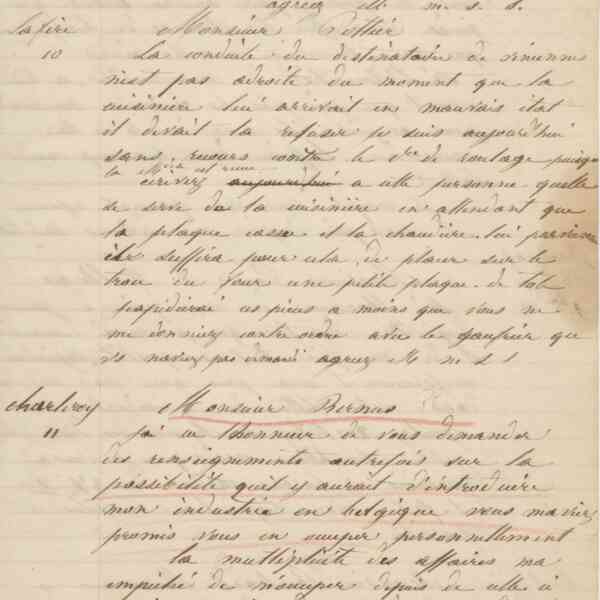 agréez M. m. s. s.
La fère Monsieur Pottier
10 La conduite du destinataire de
n'est pas adroite du moment que la
cuisinière lui arrivait en mauvais état
il devait la refuser je suis aujourd'hui
sans recours contre le de roulage puisque
la est
écrivez aujourd'hui a cette personne quelle
se serve de la cuisinière en attendant que
la plaque casse et la chaudière lui parvienne
il suffira pour cela de placer sur le
trou du four une petite plaque de tole
j'expédierai ces pièces a moins que vous ne
me donniez contre ordre avec le gaufrier que
vs n'avez pas demandé agréez M m s s
charleroy Monsieur Bernus
11 j'ai eu l'honneur de vous demander
des renseignements autrefois sur la
possibilité qu'il y aurait d'introduire
mon industrie en belgique vous m'aviez
promis vous en occuper personnellement
la multiplicité des affaires ma
empêché de m'occuper depuis de cela à